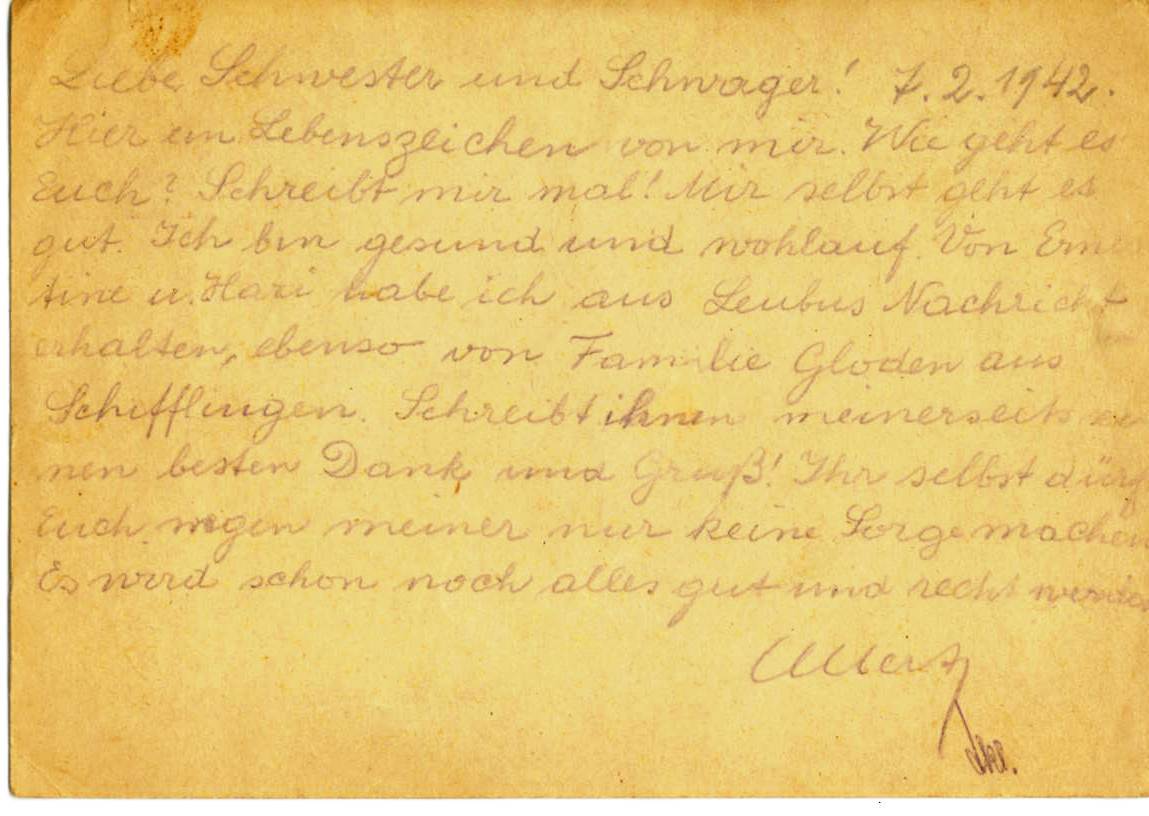 Liebe Schwester und Schwager! 7.2.1942.
Hier ein Lebenszeichen von mir. Wie geht es
Euch? Schreibt mir mal! Mir selbst geht es
gut. Ich bin gesund und wohlauf. Von Ernes
tine u. Hari habe ich aus Leubus Nachricht
erhalten, ebenso von Familie Gloden aus
Schifflingen. Schreibt ihnen meinerseits
nen besten Dank und Gruß! Ihr selbst dürf
Euch wegen meiner nur keine Sorge machen
Es wird schon noch alles gut und recht werden